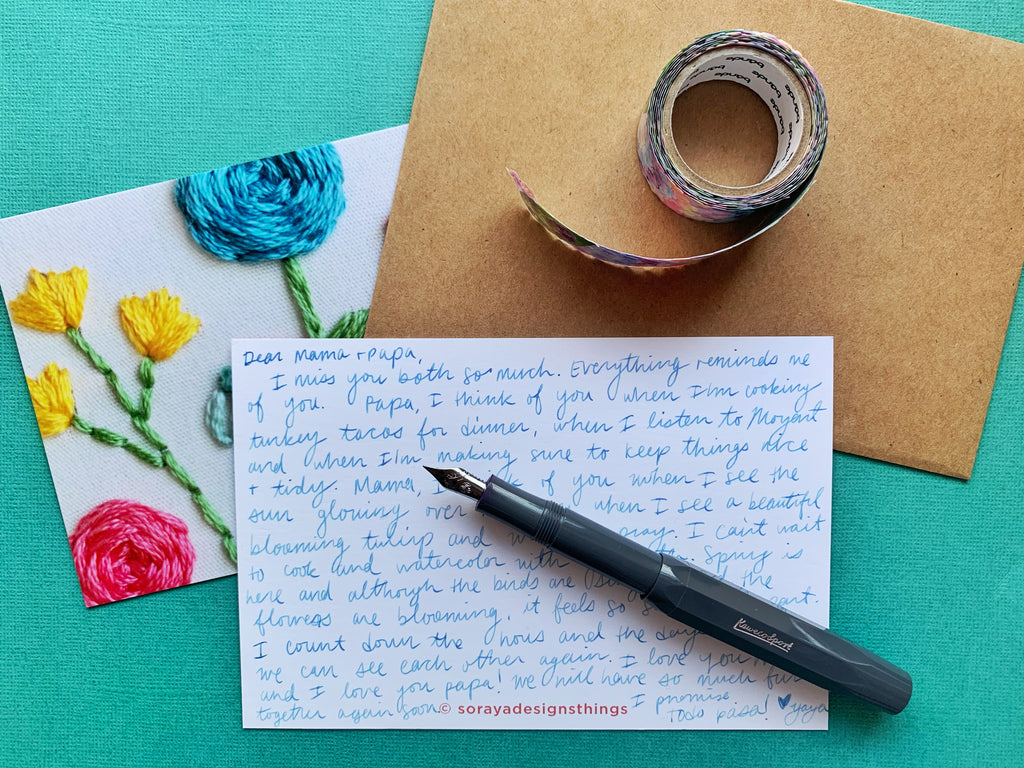 bande bande bande bande bande
Dear Mama + Papa,
I miss you both so much. Everything reminds me
of you. Papa, I think of you when I'm cooking
turkey tacos for dinner, when I listen to Mozart
and when I'm making sure to keep things nice
+ tidy. Mama, I of you when I see the
sun glowing over when I see a beautiful
blooming tulip and pray. I can't wait
to cook and watercolor with Spring is
here and although the birds are the
flowers are blooming, it feels so
I count down the hours and the days
we can see each other again. I love you
and I love you papa! We will have so much fun
together again soon. I promise
Todo pasa! ♥ yaya
KawecoSport
© sorayadesignsthings